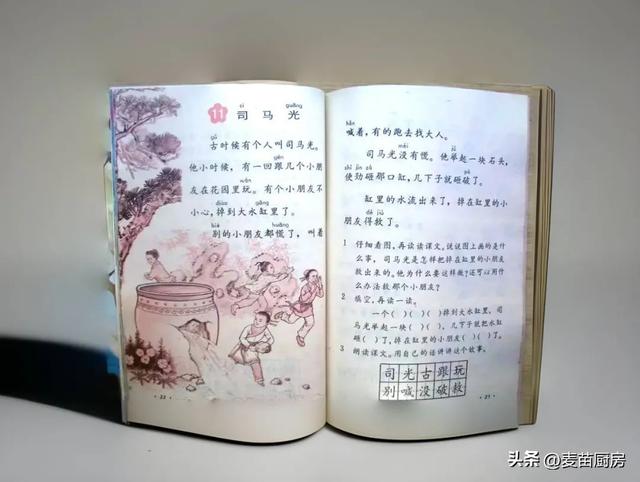 sī guāng
11 司马光
gǔ
古时候有个人叫司马光。
gēn
他小时候，有一回跟几个小朋
wán
友在花园里玩。有个小朋友不
diào gāng
小心，掉到大水缸里了。
bié huāng
别的小朋友都慌了，叫着
22
hǎn
喊着，有的跑去找大人。
méi jǔ
司马光没有慌。他举起一块石头，
shǐ jìn zá pò
使劲砸那口缸，几下子就砸破了。
缸里的水流出来了，掉在缸里的小
dé jiù
朋友得救了。
1 仔细看图，再读读课文，说说图上画的是什
么事，司马光是怎样把掉在缸里的小朋友
救出来的。他为什么要这样做？还可以用什
么办法救那个小朋友？
2 填空，再读一读。
一个（ ）（ ）（ ）掉到大水缸里，司
马光举起一块（ ）（ ），几下子就把水缸
砸（ ）了，掉在缸里的小朋友（ ）（ ）了。
3 朗读课文。用自己的话讲讲这个故事。
司光古跟玩
别喊没破救
头条 @麦苗厨房